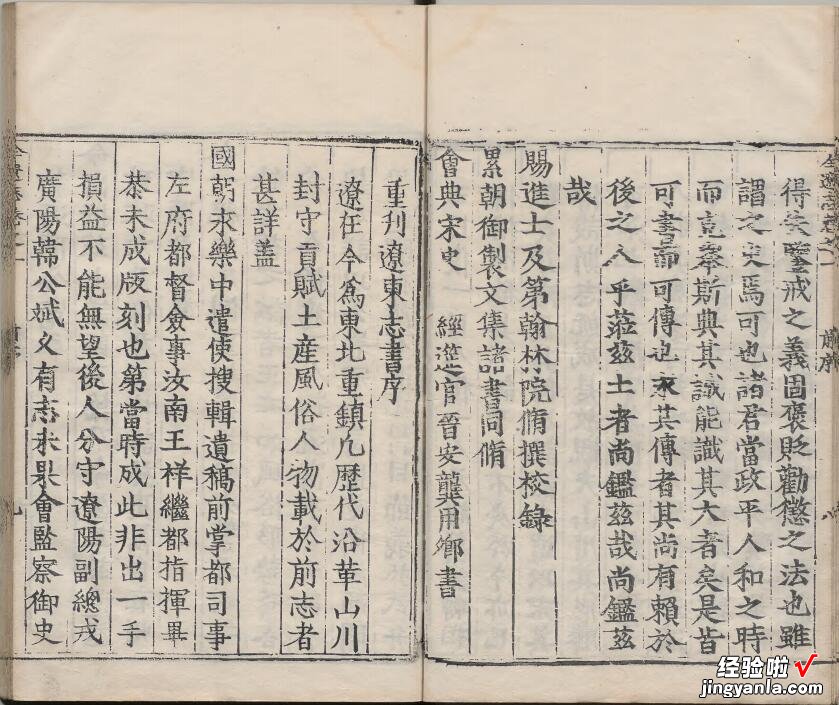 得失鑒戒之義固褒貶勸懲之法也雖
謂之史焉可也諸君當政平人和之時
而克舉斯典其識能識其大者矣是皆
可書而可傳也求其傳者其尚有賴於
後之人乎蒞茲土者尚鑑茲哉尚鑑茲
哉
賜進士及第翰林院脩撰校錄
累朝御製文集諸書同脩
會典宋史 經筵官晉安龔用卿書
重刊遼東志書序
遼在今爲東北重鎮凡歷代沿革山川
封守貢賦土産風俗人物載於前志者
甚詳蓋
國朝永樂中遣使搜輯遺稿前掌都司事
左府都督僉事汝南王祥繼都指揮畢
恭未成版刻也第當時成此非出一手
損益不能無望後人分守遼陽副總戎
廣陽韓公斌乆有志未果會監察御史
全遼志卷之一 前序 八
全遼志卷之一 前序 九
经验啦√
jingyanla.com